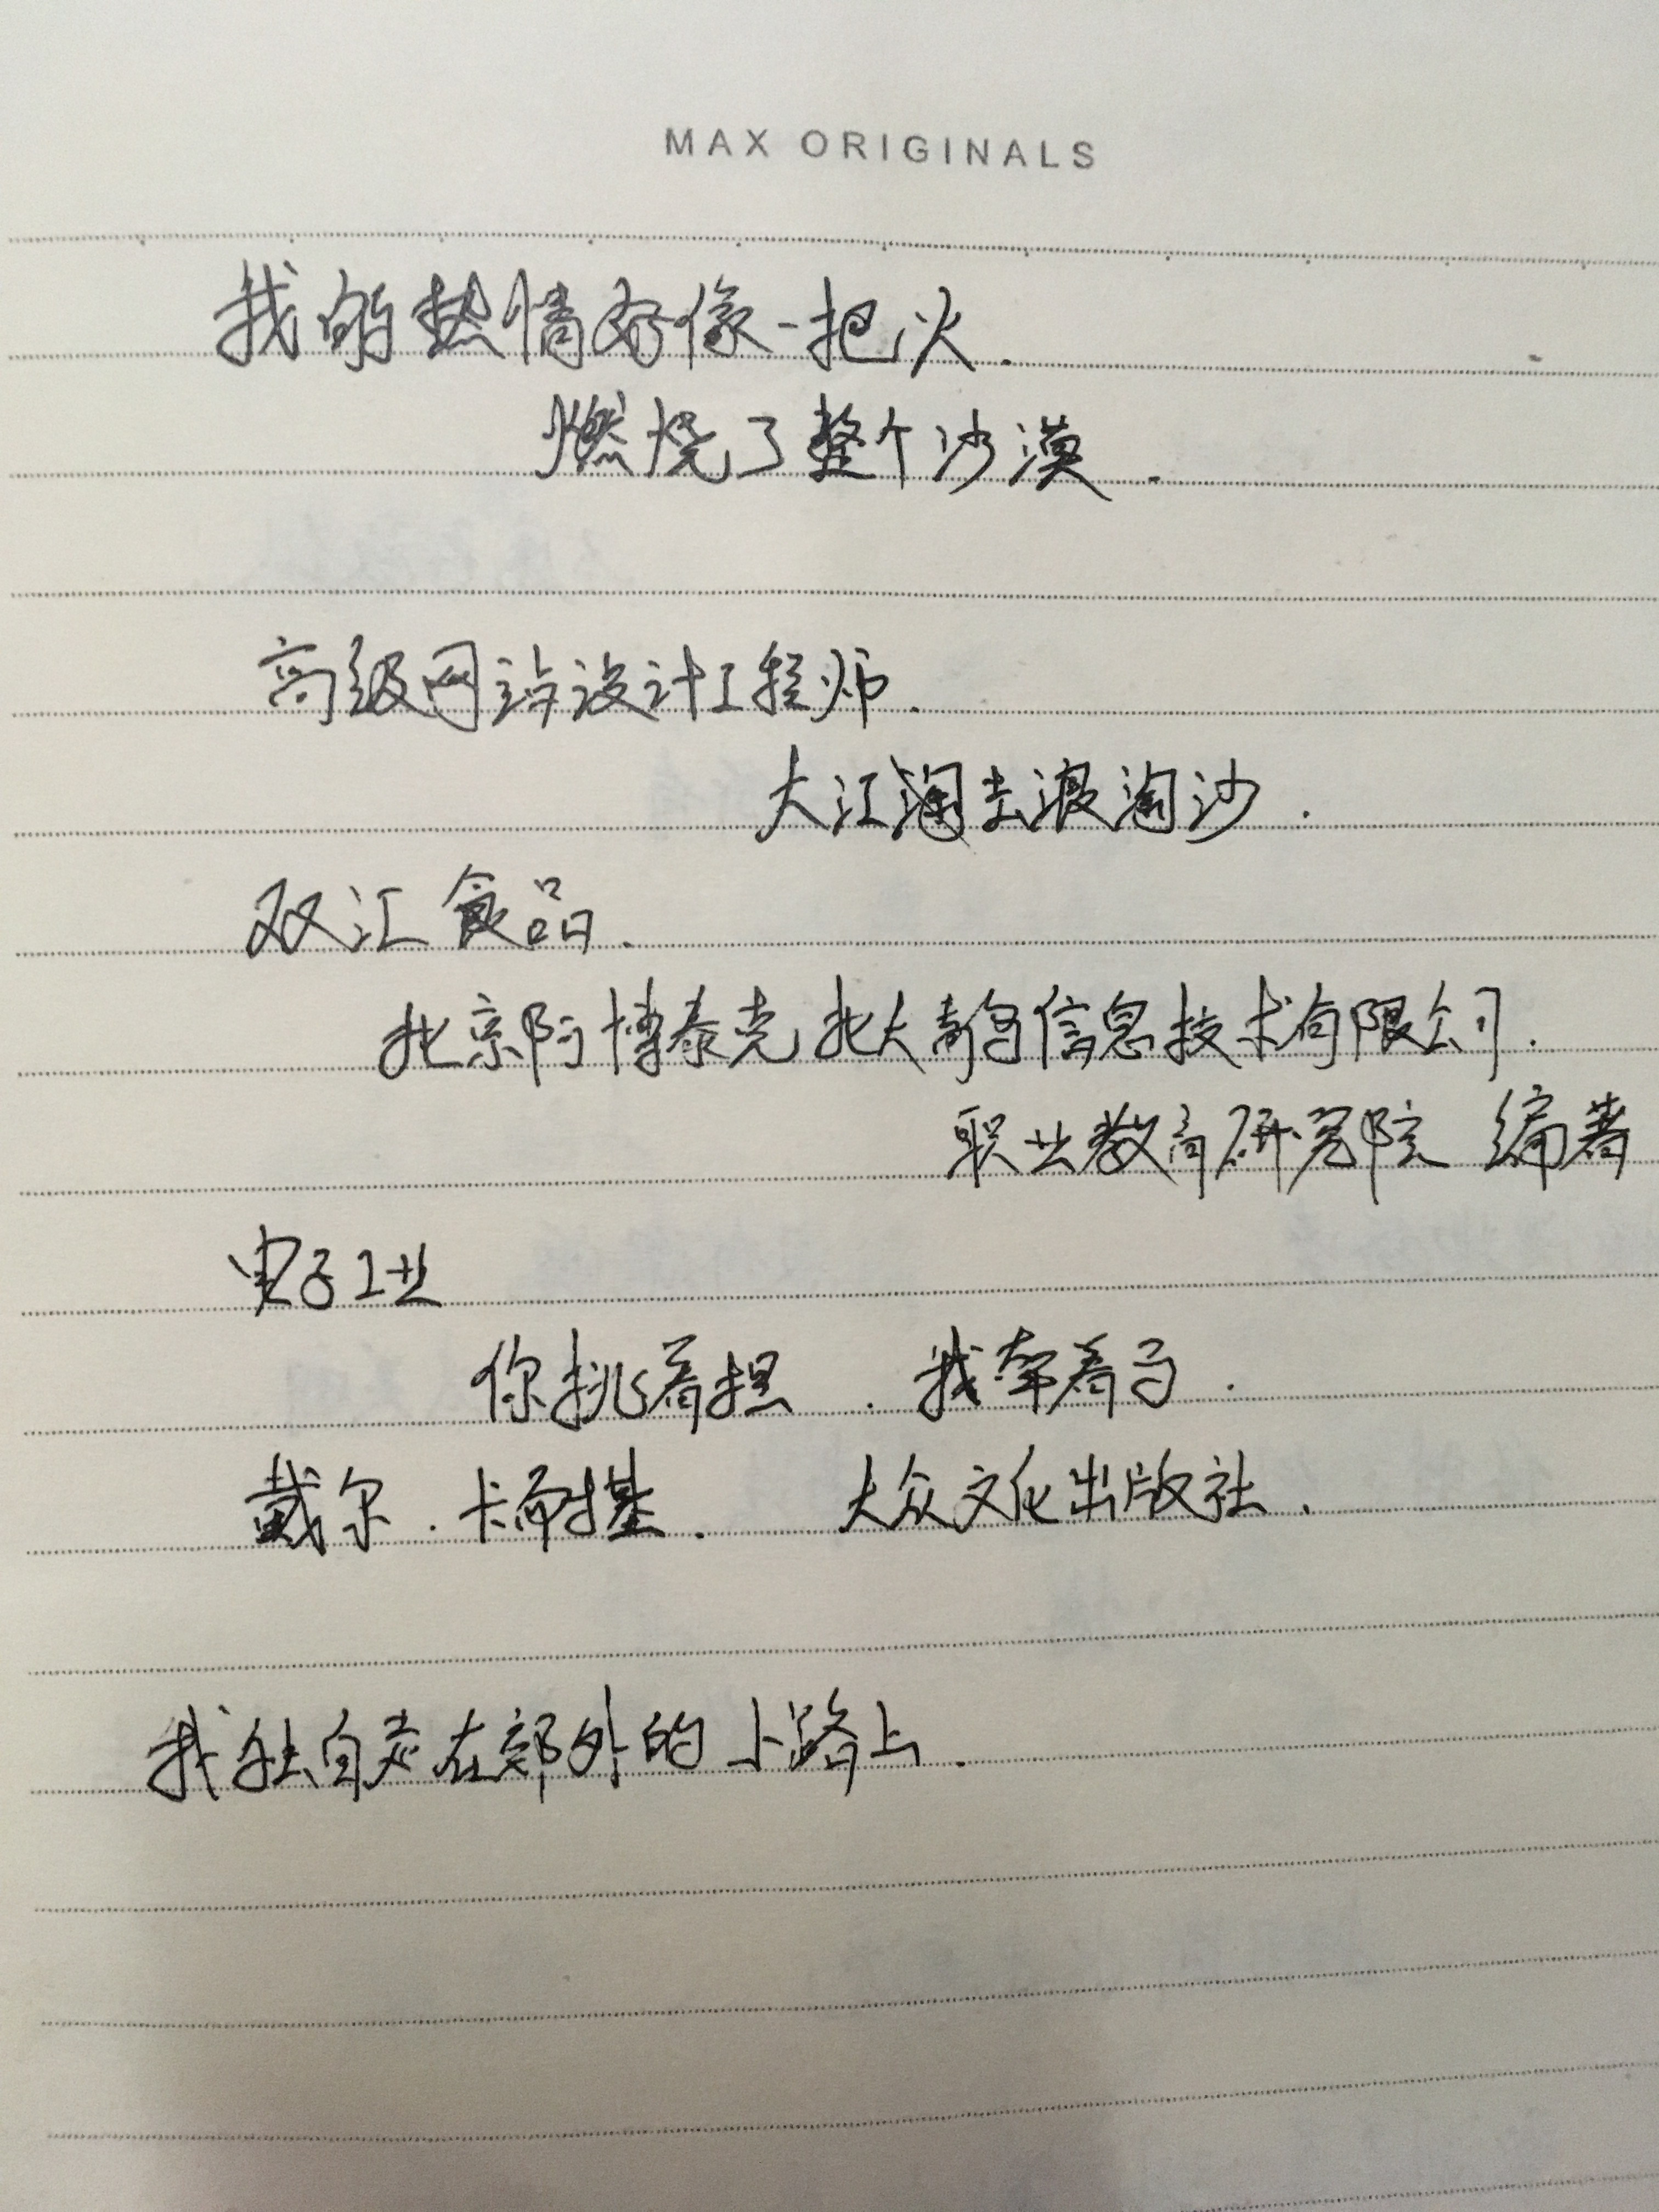 MAX ORIGINALS
我的热情好像一把火.
燃烧了整个沙漠.
高级网站设计工程师.
大江淘去浪淘沙.
双汇食品.
北京阿博泰克北大青鸟信息技术有限公司.
职业教育研究院 编著
电子工业
你挑着担.我牵着马.
戴尔.卡耐基. 大众文化出版社.
我独自走在郊外的小路上.